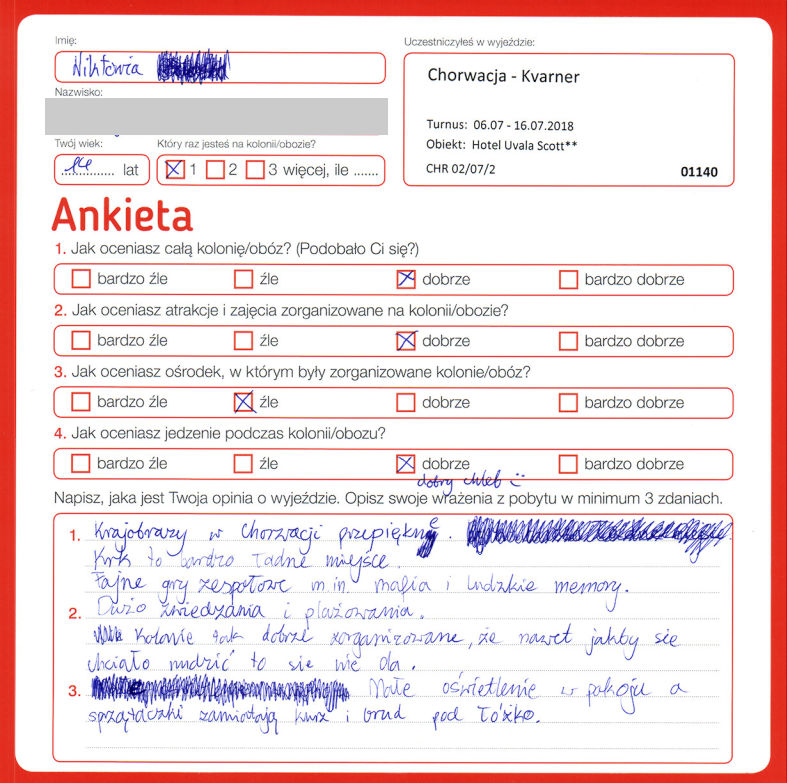 Imię:
Uczestniczyłeś w wyjeździe:
Wiktowia
Chorwacja - Kvarner
Nazwisko:
Turnus: 06.07 - 16.07.2018
Twój wiek:
Który raz jesteś na kolonii/obozie?
Obiekt: Hotel Uvala Scott**
14 lat
1 2 3 więcej, ile .......
CHR 02/07/2
01140
Ankieta
1. Jak oceniasz całą kolonię/obóz? (Podobało Ci się?)
bardzo źle źle dobrze bardzo dobrze
2. Jak oceniasz atrakcje i zajęcia zorganizowane na kolonii/obozie?
bardzo źle źle dobrze bardzo dobrze
3. Jak oceniasz ośrodek, w którym były zorganizowane kolonie/obóz?
bardzo źle źle dobrze bardzo dobrze
4. Jak oceniasz jedzenie podczas kolonii/obozu?
bardzo źle źle dobrze bardzo dobrze
dobry chleb :)
Napisz, jaka jest Twoja opinia o wyjeździe. Opisz swoje wrażenia z pobytu w minimum 3 zdaniach.
1. Krajobrazy w Chorwacji przepiękne.
Krk to bardzo ładne miejsce.
Fajne gry zespołowe m.in. mafia i ludzkie memory.
2. Dużo zwiedzania i plażowania.
Kolonie tak dobrze zorganizowane, że nawet jakby się
chciało nudzić to się nie da.
3. Małe oświetlenie w pokoju a
sprzątaczki zamiatają kurz i brud pod łóżko.